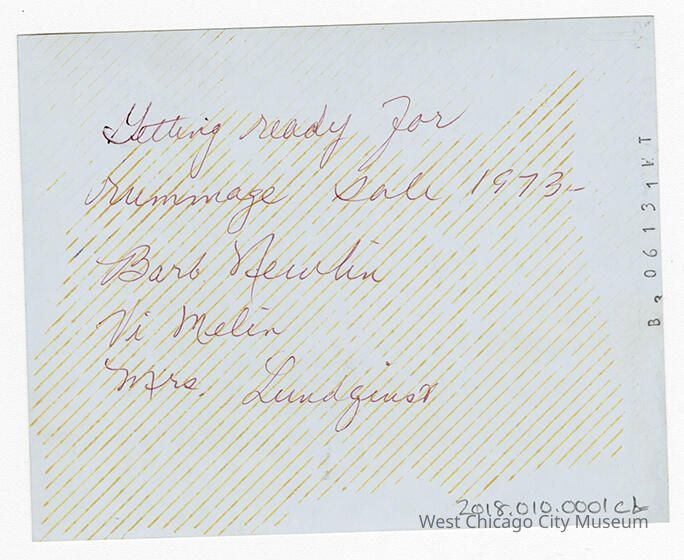 Getting ready for
rummage sale 1973-
Barb Newlin
Vi Melin
Mrs. Lundquist
2018.010.0001cb
West Chicago City Museum